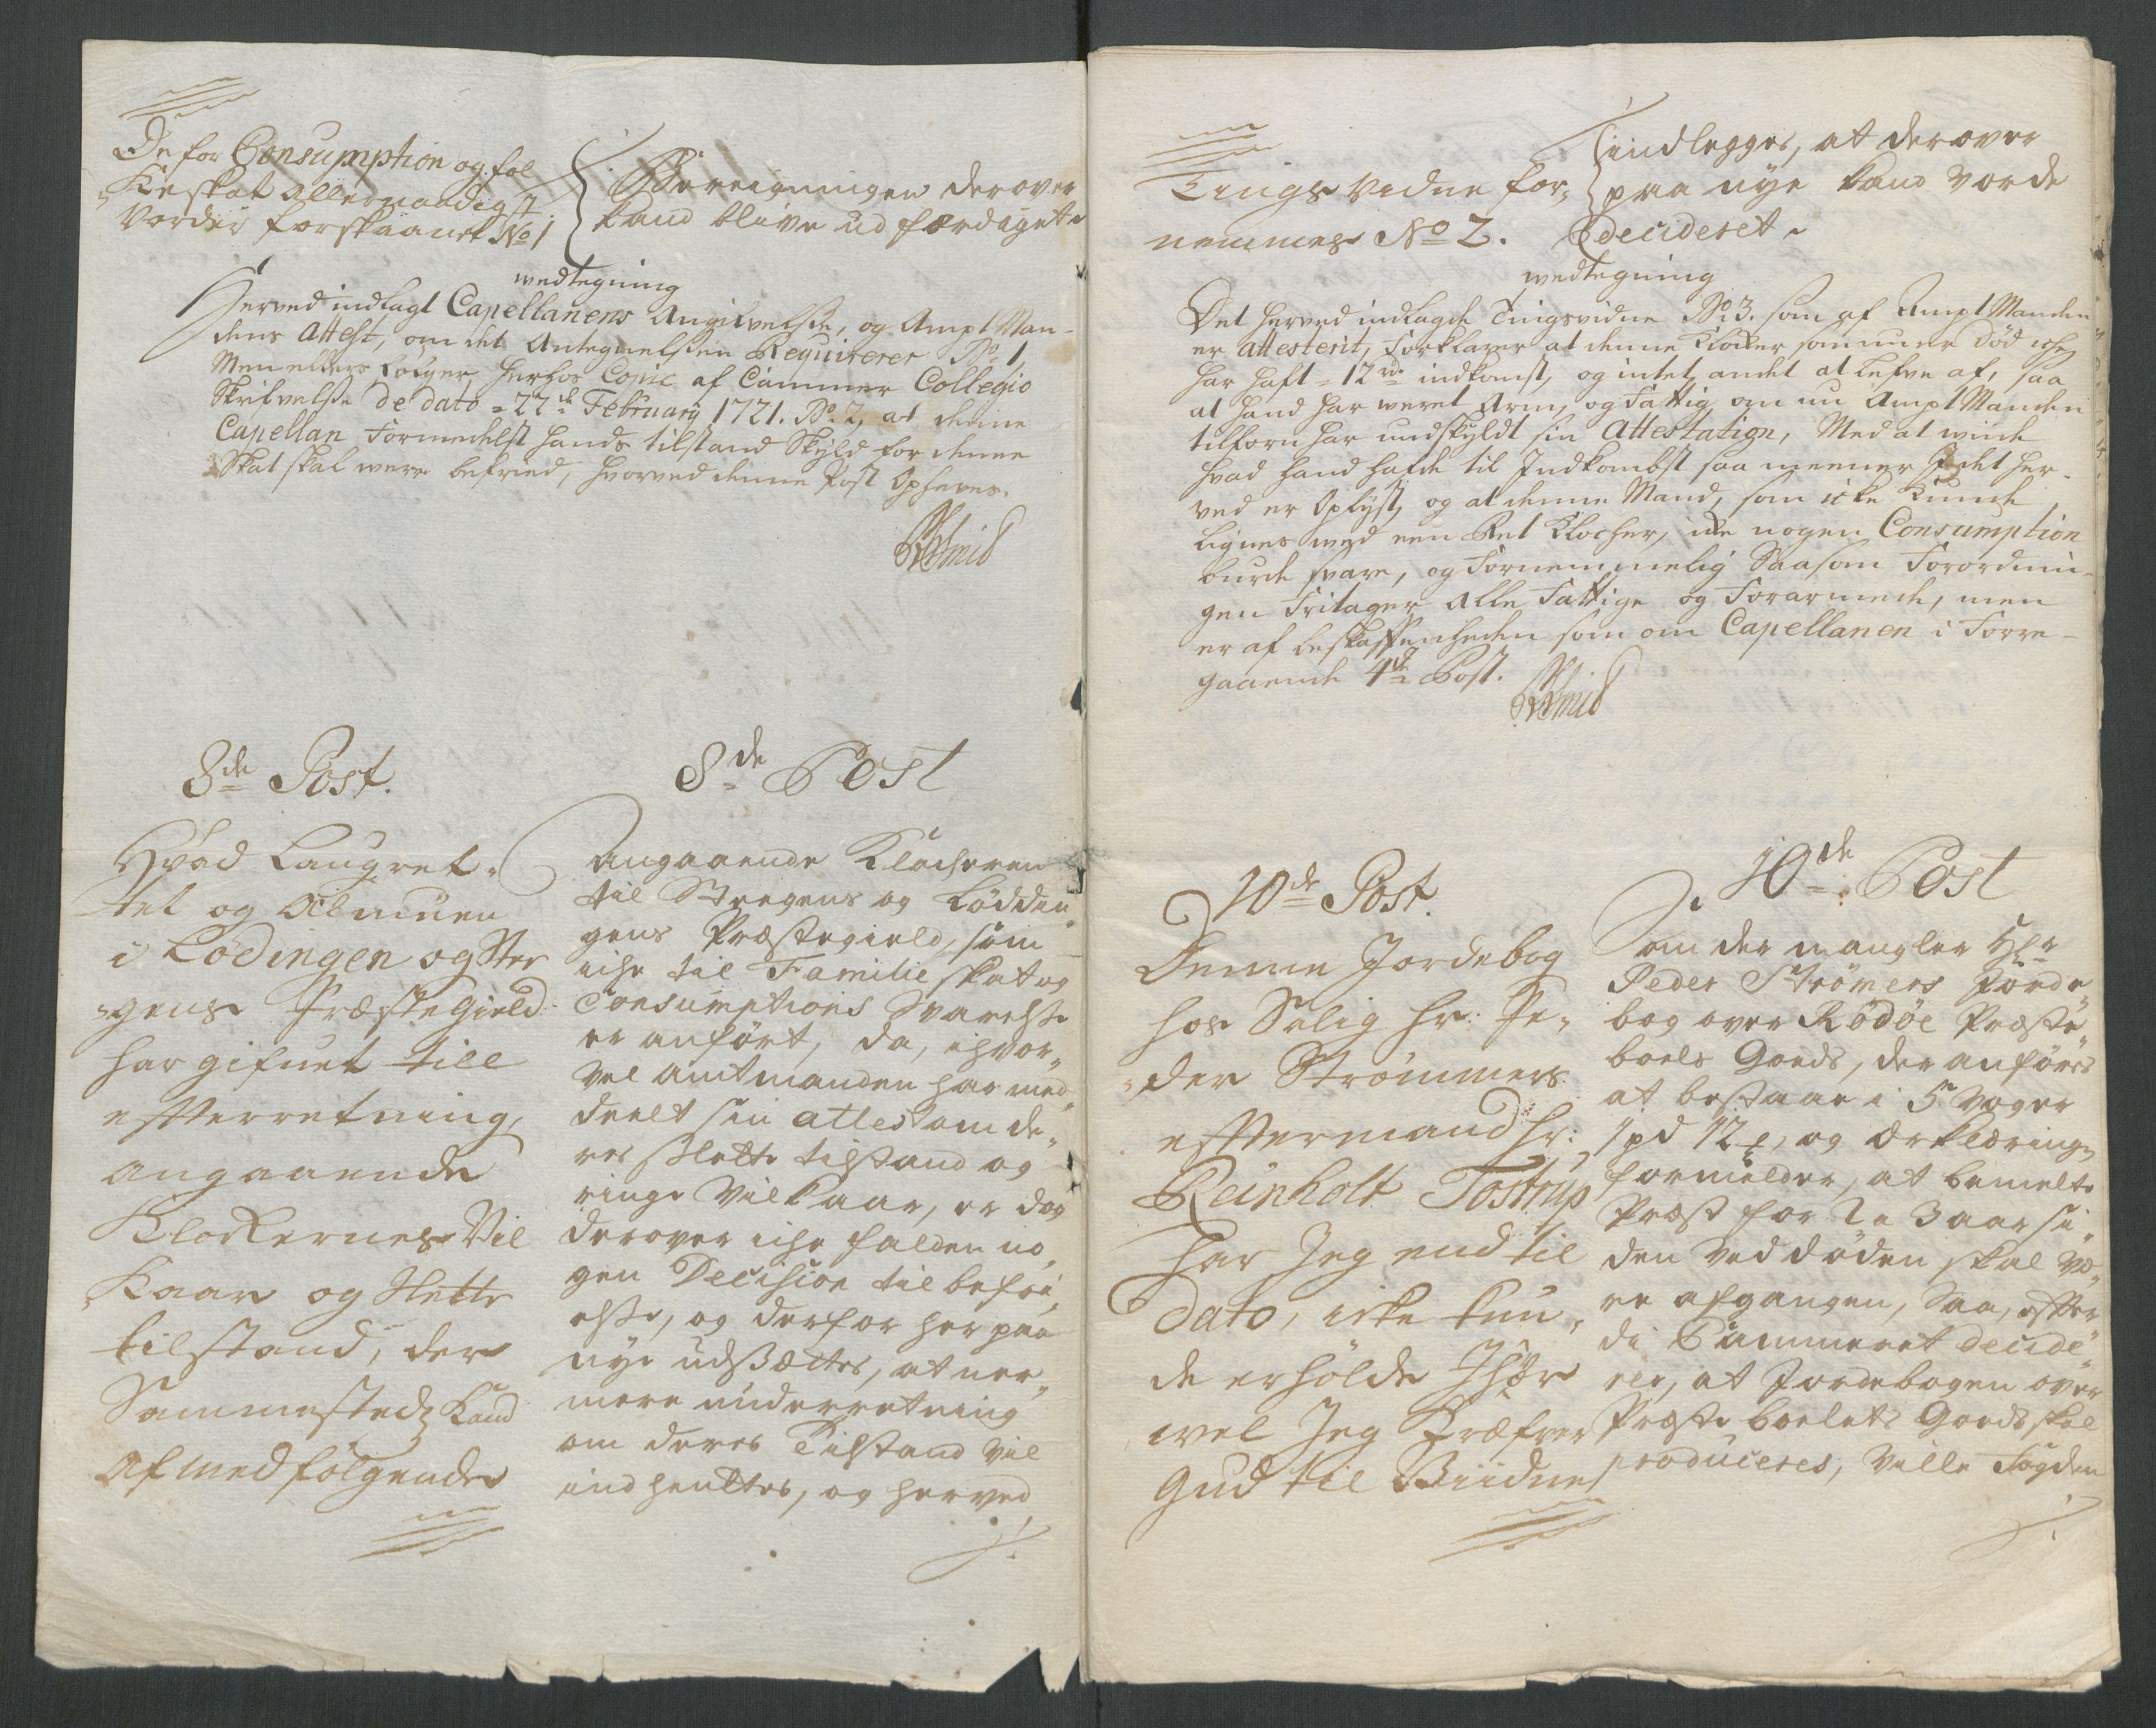 De for Consumption og fol
Keskat Allernaadigst
Vorder forskaanet No 1
Beregningen derover
kand blive udfærdiget
wedtegning
Herved indlagt Capellanens Angifvelsse, og AmptMan-
dens Attest, om det Antegnelssen Requirerer No. 1,
Men ellers følger herhos Copie af Cammer Collegio
Skrifvelsse de dato = 22de February 1721. No. 2, at denne
Capellan Formedelst hands tilstand Skyld for denne
Skat skal were befried, hvorved denne Post Opheves.
8de Post.
Hvad Laugret-
tet og Almuen
i Lødingen og Ster
gens Præstegield
har gifuet till
efterretning,
angaaende
Klockernes Vil
Kaar og slette
tilstand, der
Sammestedz Kand
af medfølgende
8de Post
Angaaende Klocheren
til Steegens og Lødden
gens Præstegield, som
iche til Familie skat og
Consumptions Svarelsse
er anført, da, ihvor-
vel amtmanden har med-
deelt sin attest om de-
res slette tilstand og
ringe Vilkaar, er dog
derover iche falden no-
gen Decision til befri-
elsse, og derfor her paa
nye udsættes, at ner-
mere underretning
om deres Tilstand vil
indhentes, og herved
Tingsvidne for-
nemmes No 2.
indlegges, at derover
paa nye kand vorde
decideret
wedtegning
Det herved indlagde Tingsvidne No. 3. som af AmptManden
er attesterit, Forklarer at denne Klocker som nu er død iche
har haft = 12 rd indkomst, og intet andet at lefve af, saa
at hand har weret Arm, og Fattig, om nu AmptManden
tilforn har undskyldt sin Attestation, Med at wiide
hvad hand hafde til Indkombst saa meener Jeg det her-
ved er Oplyst, og at denne Mand, som icke kunde
lignes med een Ret Klocher, icke nogen Consumption
burde svare, og Fornemmelig Saasom Forordnin-
gen Fritager Alle Fattige og Forarmede, men
er af beskaffenheden som om Capellanen i Forre-
gaaende 4de Post.
10de Post.
Denne Jordebog
hos Salig hr: Pe-
der Strømmers
eftermand hr:
Reinholt Tostrup
har Jeg end til
Dato, icke kun-
de erholde Ihvor
wel Jeg Præfver
Gud til Viidne
10de Post
Som der mangler Hr
Peder Strømers Jorde
bog over Rødøe Præste
boels Goeds, der anføres
at bestaae i 5 Voger
1 pd 12 , og Erklæringen
formelder, at bemelte
Præst for 2 a 3 aar si-
den ved døden skal Væ-
re afgangen, Saa, efter
di Cammeret decide-
rer, at Jordebogen over
Præste boelets Goeds skal
produceres, Ville Fogden